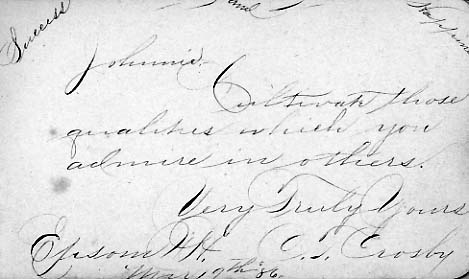 Success and Happiness
Johnnie.
Cultivate those
qualities which you
admire in others.
Very Truly Yours
Epsom N.H. C.S. Crosby
Mar. 19th '86.